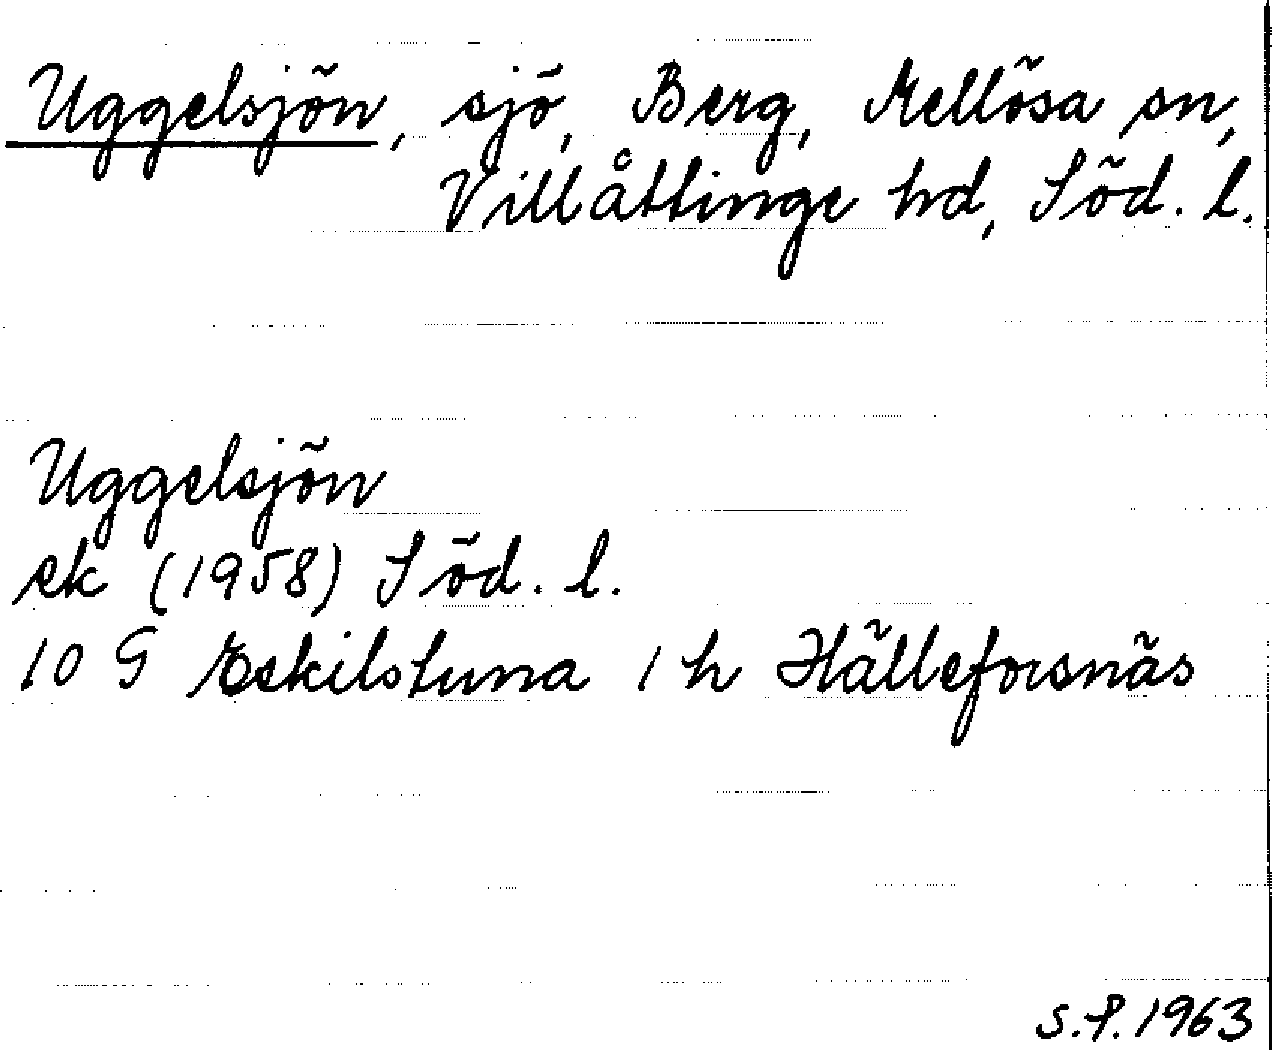 Uggelsjön, sjö, Berg, Mellösa sn,
Villåttinge hd, Söd. l.
Uggelsjön
ek (1958) Söd. l.
10 G Eskilstuna 1 h Hälleforsnäs
S.P. 1963